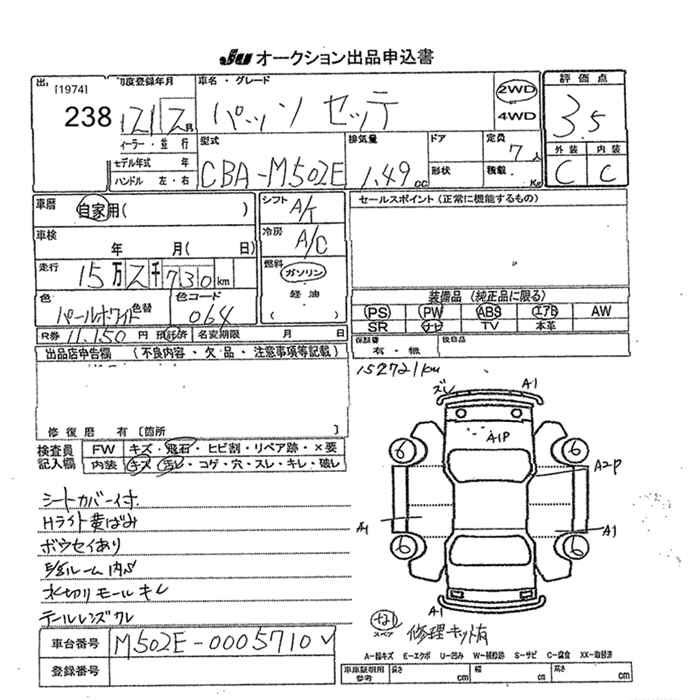 JU オークション出品申込書
出
[1974]
238
初度登録年月
車名・グレード
パッソ セッテ
2WD
4WD
評価点
3.5
21 2 月
ィーラー・並行
モデル年式 年
ハンドル 左・右
型式
CBA-M502E
排気量
1.49 cc
ドア
形状
定員
7 人
積載 Kg
外装 内装
C C
車歴
自家用( )
シフト
A/T
セールスポイント (正常に機能するもの)
車検
年 月( 日)
冷房
A/C
走行
15万 2千 730 km
燃料
ガソリン
軽油
( )
色
パールホワイト
色替
色コード
064
装備品 (純正品に限る)
PS PW ABS エアB AW
SR ナビ TV 本革
R券 11,150 円 預託済
名変期限 月 日
保証書
有・無
後日品
出品店申告欄 (不良内容・欠品・注意事項等記載)
152721km
修復歴 有 [箇所 ]
検査員
記入欄
FW キズ・飛石・ヒビ割・リペア跡・×要
内装 キズ・汚レ・コゲ・穴・スレ・キレ・破レ
ズレ A1
A1P
6 6
A2P
A1 A1
6 6
A1
シートカバー付
Hライト黄ばみ
ボウセイあり
水切りモールキレ
テールレンズワレ
なし
スペア
修理キット有
車台番号 M502E-0005710
登録番号
A-線キズ E-エクボ U-凹み W-補修跡 S-サビ C-腐食 XX-取替済
車庫証明用
参考
長さ cm 幅 cm 高さ cm